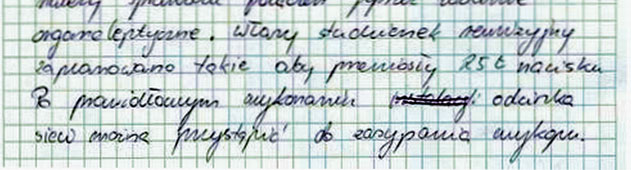 należy
organoleptyczne. Włazy studzienek rewizyjny
zaplanowano takie aby przeniosły 25t nacisku
Po prawidłowym wykonaniu odcinka
sieci można przystąpić do zasypania wykopu.